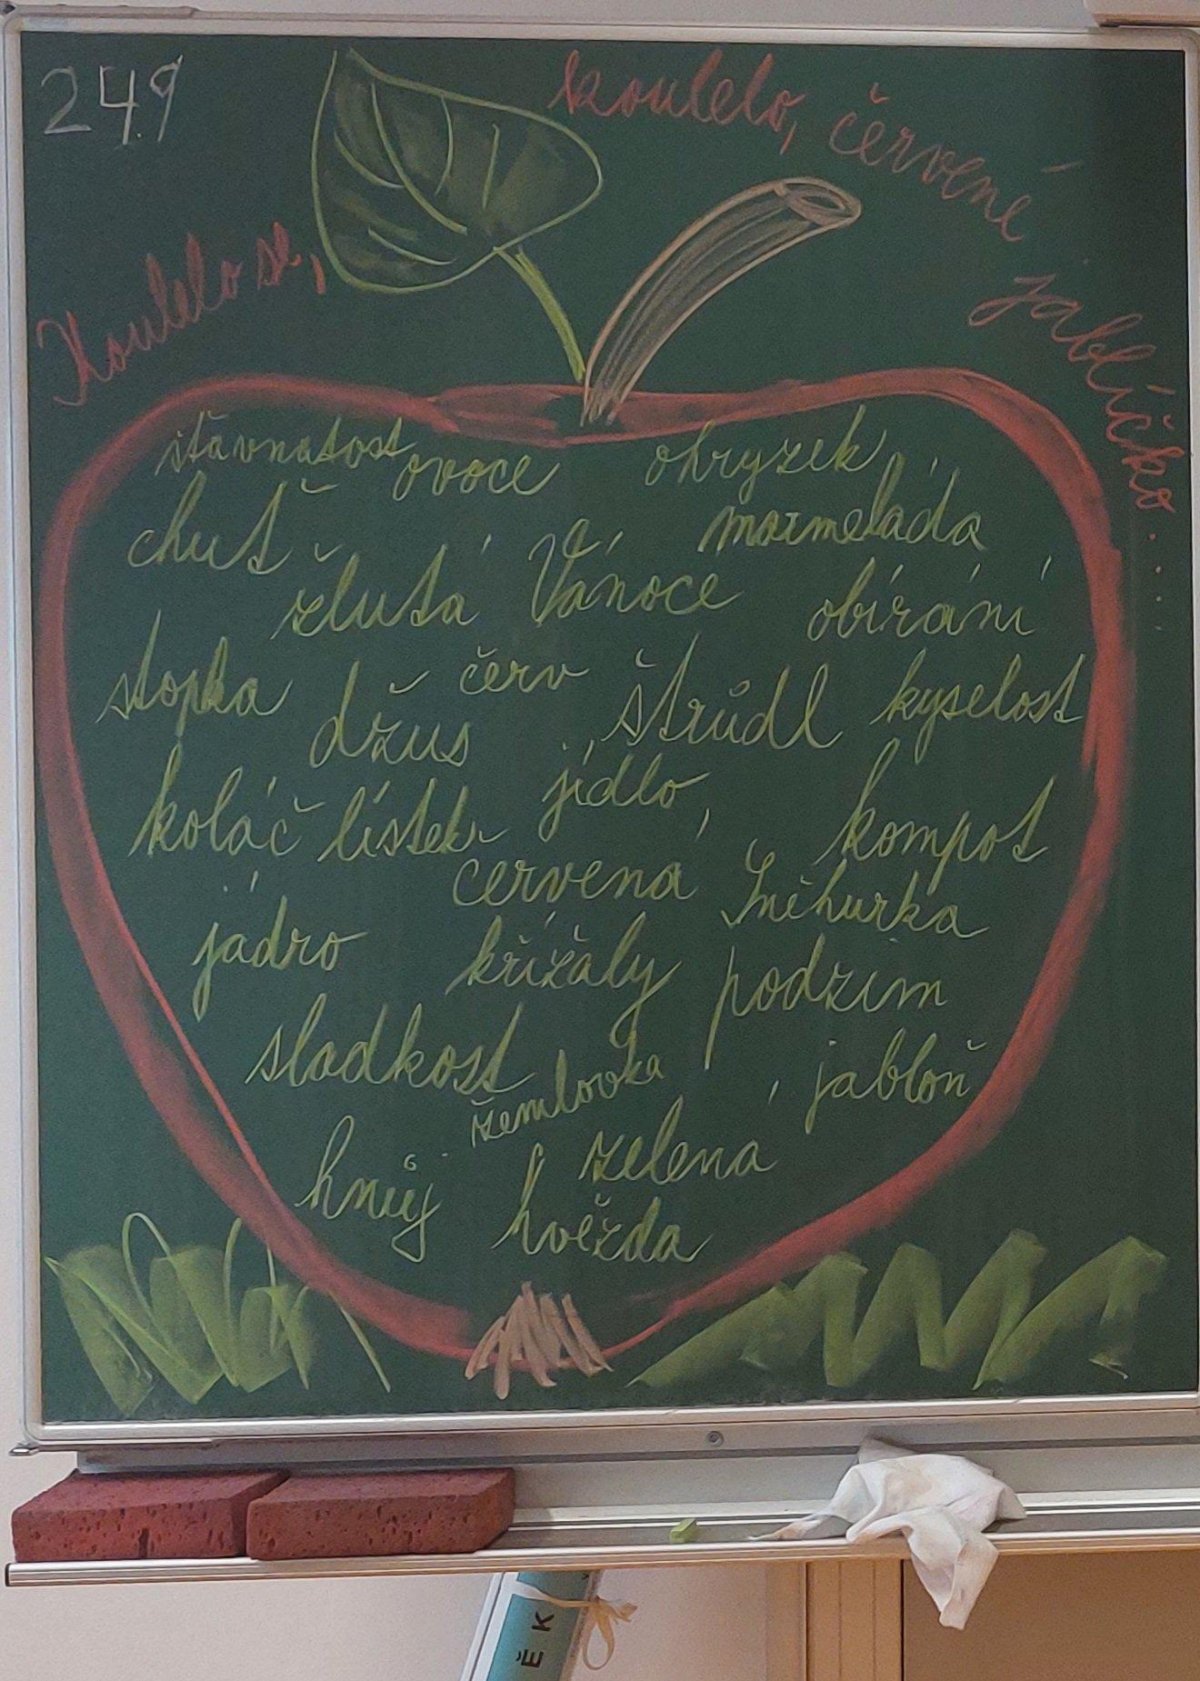 24.9
Koulelo se, koulelo, červené jablíčko.....
šťavnatost ovoce ohryzek
chuť marmeláda
žlutá Vánoce obírání
stopka červ
džus štrůdl kyselost
koláč lístek jídlo kompot
červená Sněhurka
jádro křížaly podzim
sladkost žemlovka jabloň
hnůj zelená
hvězda
ĚK